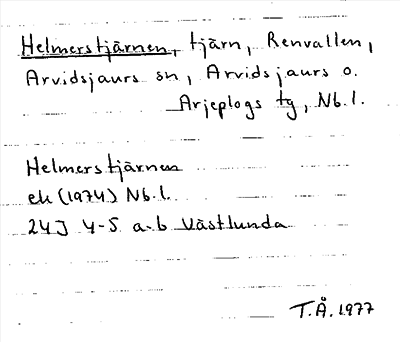 Helmerstjärnen, tjärn, Renvallen,
Arvidsjaurs sn, Arvidsjaurs o.
Arjeplogs tg, Nb.l.
Helmerstjärnen
ek (1974) Nb.l.
24J 4-5 a-b Västlunda
T.Å. 1977